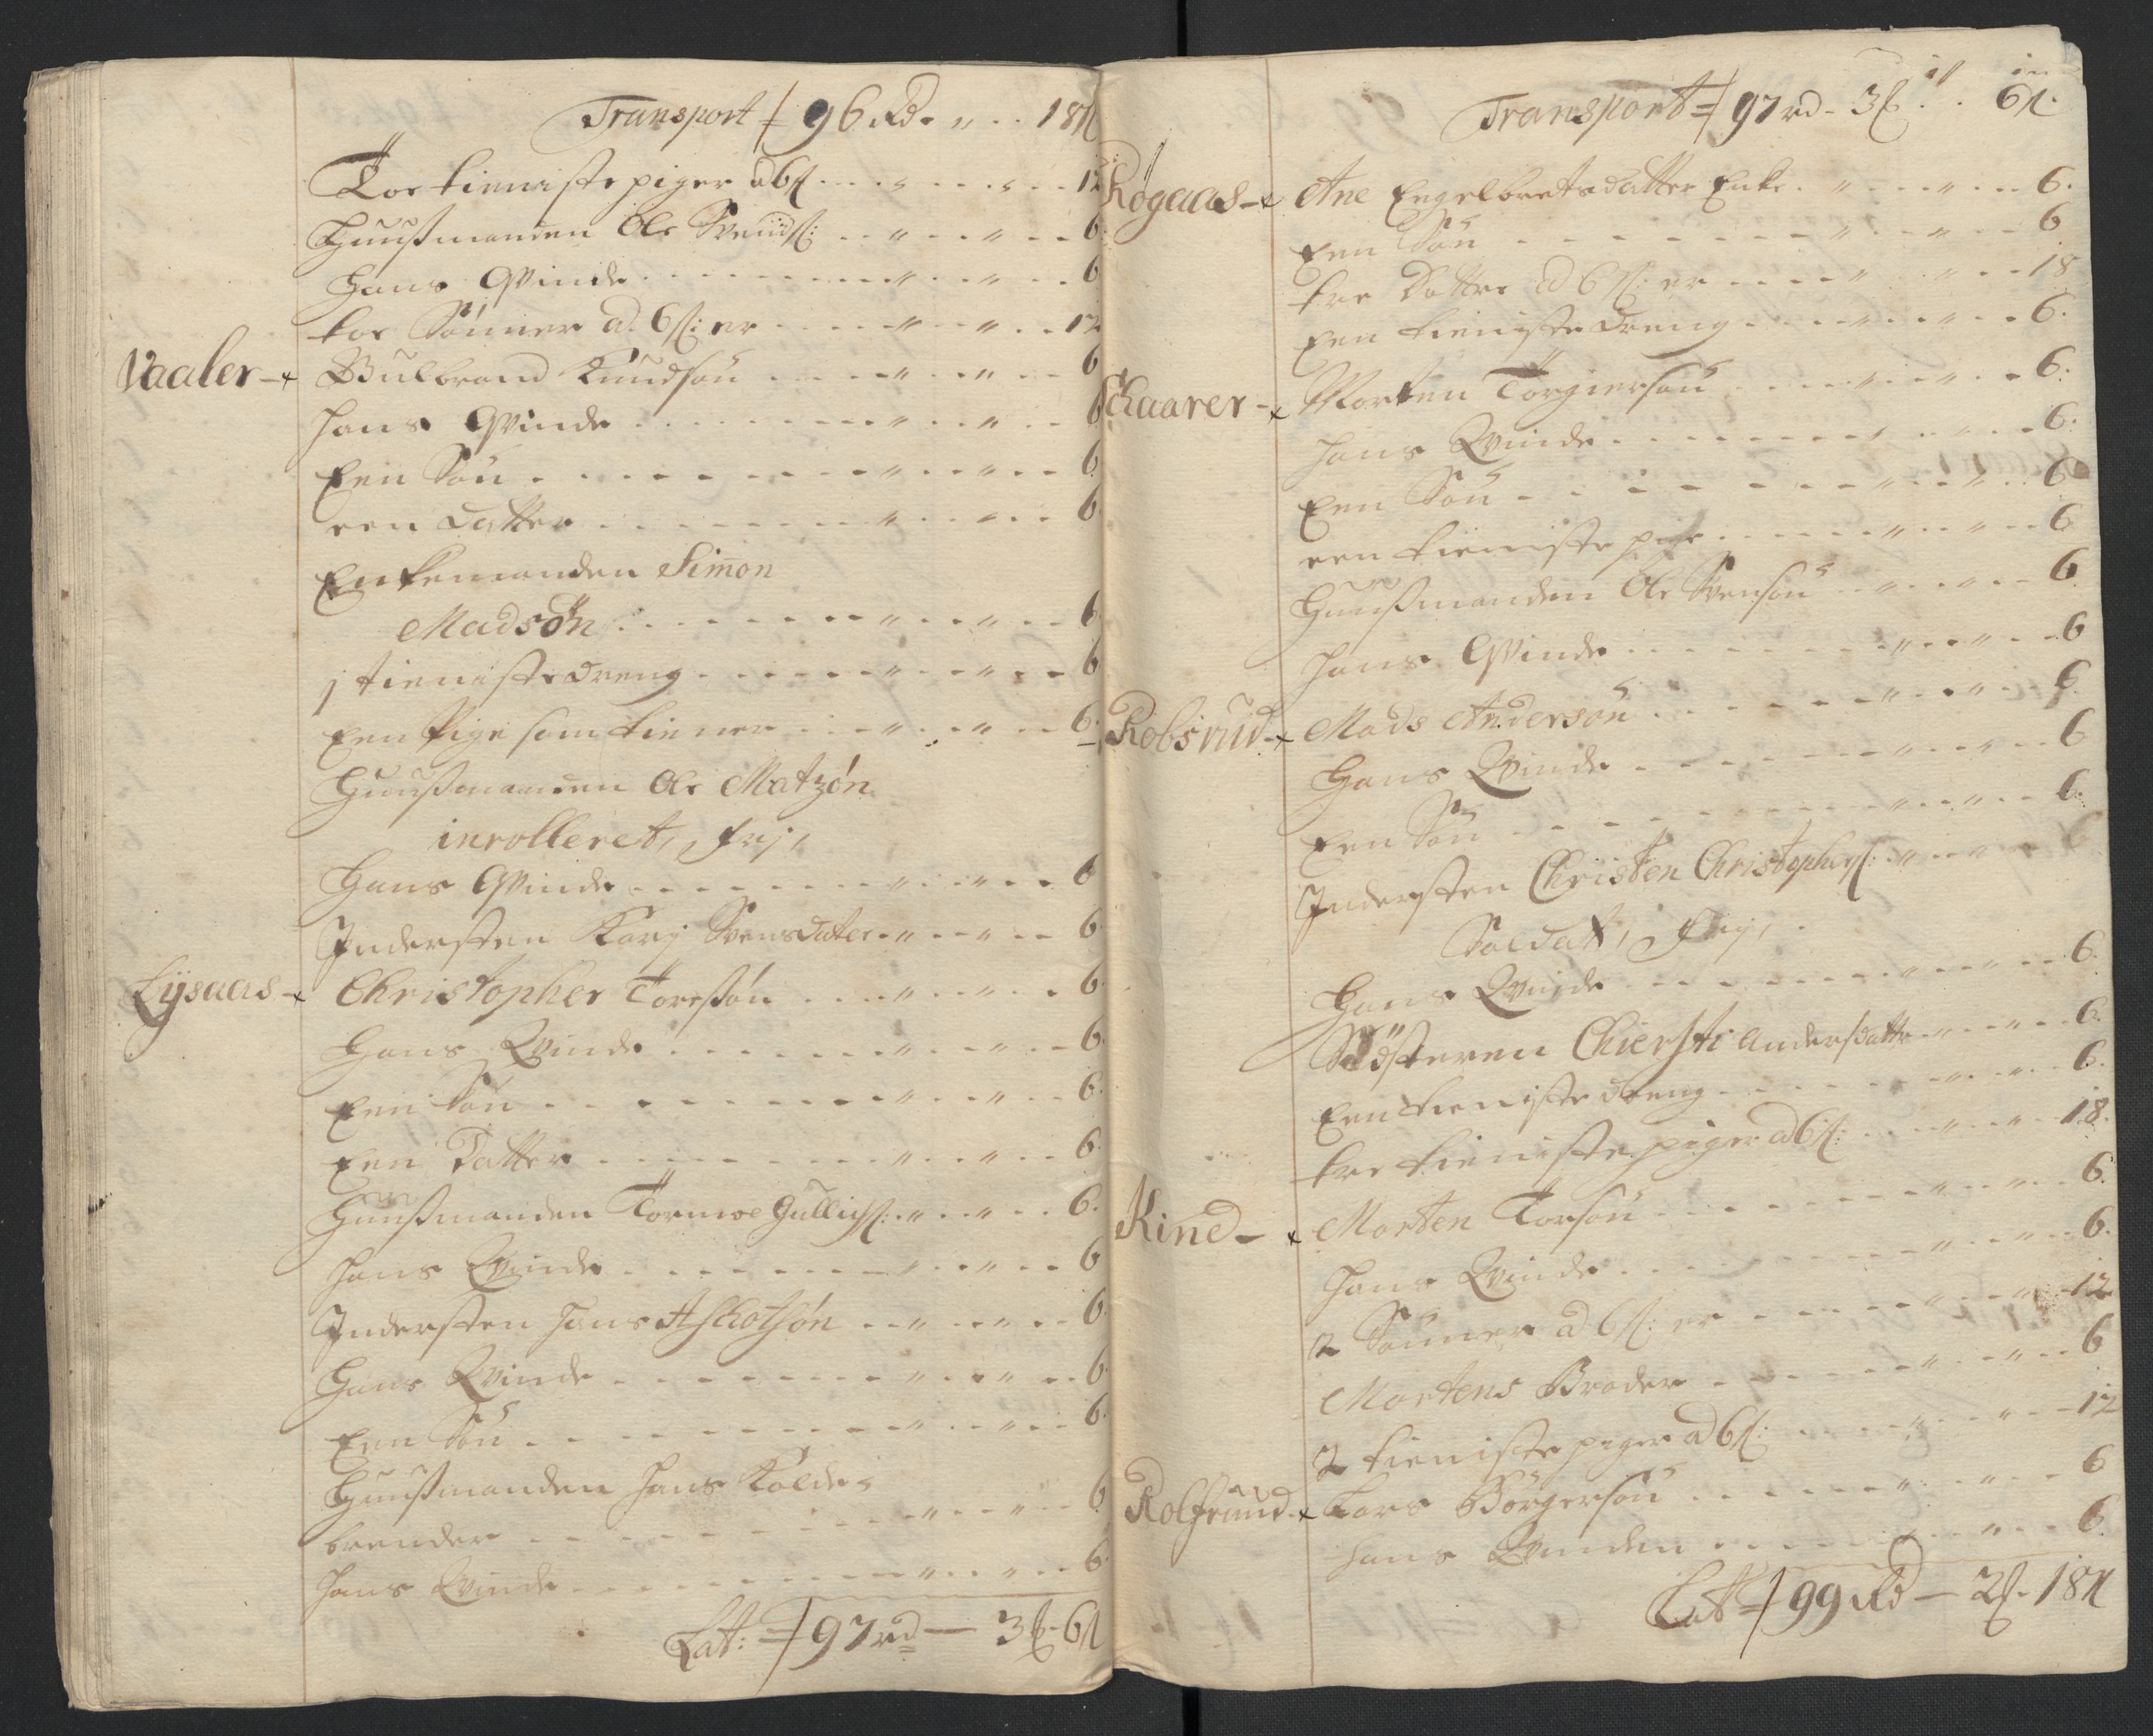 Transport 96 Rd - " - 18ß
Toe tieniste piger a 6ß - 12
Huußmanden Ole Svends: - " - " - 6
Hans Qvinde - " - " - 6
toe Sönner a 6ß: er - " - " - 12
Vaaler - Gulbrand Knudsøn - " - " - 6
Hans Qvinde - " - " - 6
Een Søn - " - " - 6
een datter - " - " - 6
Enkemanden Simon
Madsøn - " - " - 6
j tieniste dreng - " - " - 6
Een Pige som tiener - " - " - 6
Huußmanden Ole Matzøn
inrolleret, frj,
Hans Qvinde - " - " - 6
Indersten Karj Svensdater - " - " - 6
Lÿsaas - Christopher Toresøn - " - " - 6
Hans Qvinde - " - " - 6
Een Søn - " - " - 6
Een Datter - " - " - 6
Huußmanden Tormoe Gullichs: - " - " - 6
Hans Qvinde - " - " - 6
Indersten Hans Askotsøn - " - " - 6
Hans Qvinde - " - " - 6
Een Søn - " - " - 6
Huußmanden Hans Kolde
brender - " - " - 6
Hans Qvinde - " - " - 6
Lat: 97 rd - 3 - 6ß
Transport 97 rd - 3 - 6ß
Røgaas - Ane Engelbretsdatter Enke - " - " - 6
Een Søn - " - " - 6
tre Døttre a 6ß: er - " - " - 18
Een tieniste dreng - " - " - 6
Skaarer - Morten Torgiersøn - " - " - 6
Hans Qvinde - " - " - 6
Een Søn - " - " - 6
een tieniste pige - " - " - 6
Huußmanden Ole Svensøn - " - " - 6
Hans Qvinde - " - " - 6
Robsrud - Mads Andersøn - " - " - 6
Hans Qvinde - " - " - 6
Een Søn - " - " - 6
Indersten Christen Christophers: - "
Soldat, frj,
Hans Qvinde - " - " - 6
Södsteren Chiersti Andersdatter - " - " - 6
Een tieniste dreng - " - " - 6
tre tieniste piger a 6ß: - " - " - 18
Kind - Morten Torsøn - " - " - 6
Hans Qvinde - " - " - 6
2 Sönner a 6ß: er - " - " - 12
Mortens Broder - " - " - 6
2 tieniste piger a 6ß: - " - " - 12
Rolfsrund - Lars Børgersøn - " - " - 6
Hans Qvinden - " - " - 6
Lat 99 Rd - 2 - 18ß